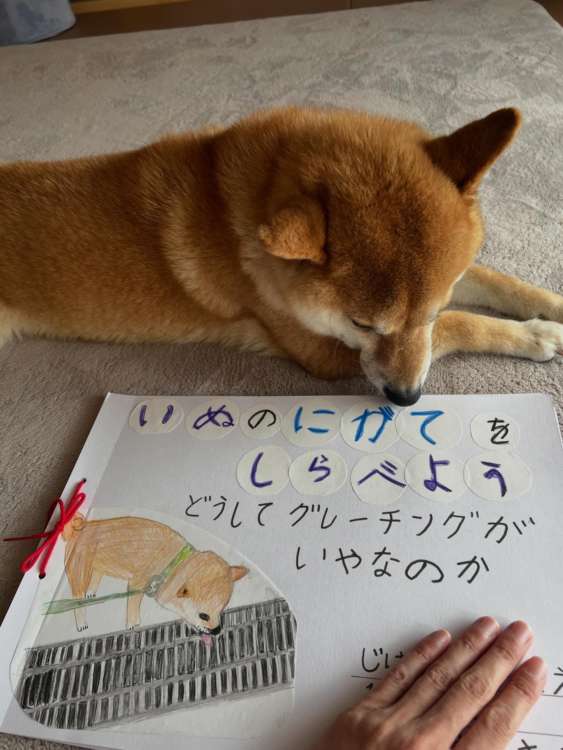 いぬのにがてを
しらべよう
どうしてグレーチングが
いやなのか